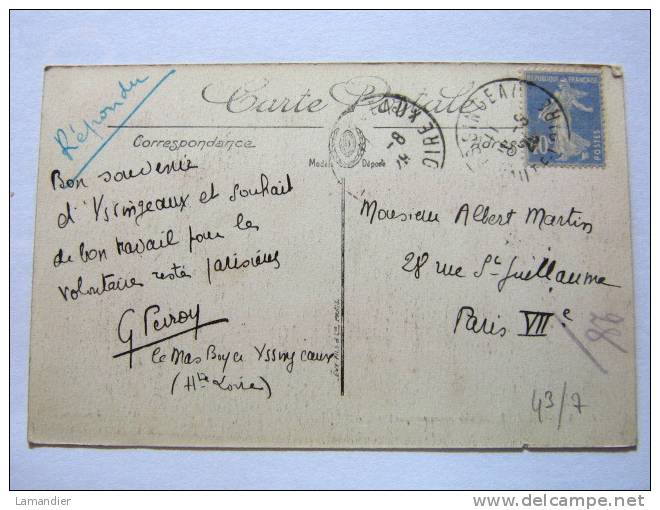 Répondu
Carte Postale
Correspondance
Modèle Déposé
Adresse
RÉPUBLIQUE FRANÇAISE
POSTES
Bon souvenir
d'Yssingeaux et souhait
de bon travail pour les
volontaires restés parisiens
G Peiroy
Le Mas Boyer Yssingeaux
(Hte Loire)
Monsieur Albert Martin
28 rue St Guillaume
Paris VIIe
43/7
Lamandier
www.delcampe.net